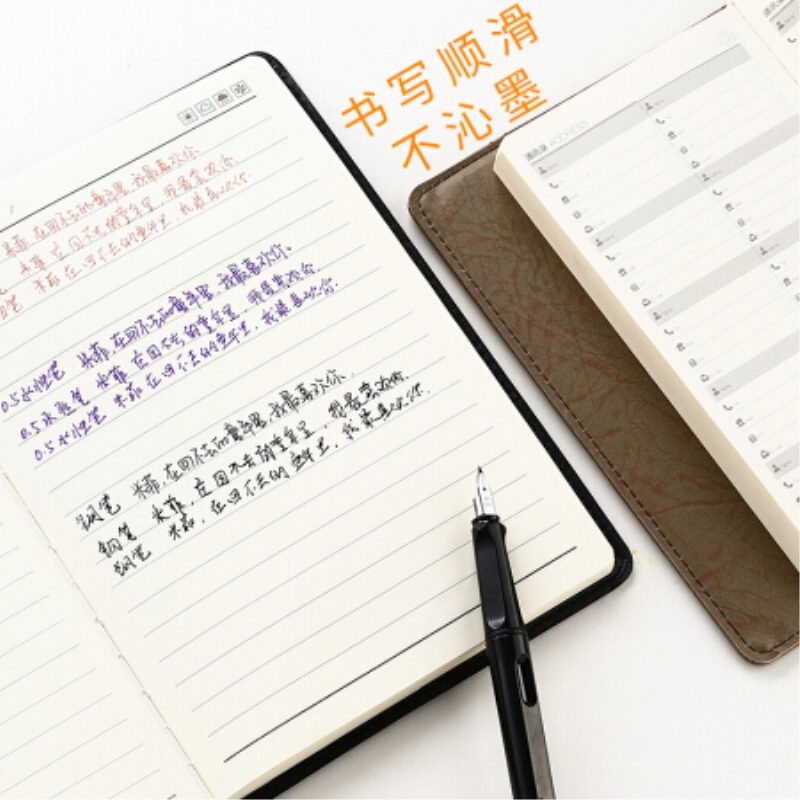 书写顺滑
不沁墨
米菲,在回不去的童年里,我最喜欢你.
米菲,在回不去的童年里,我最喜欢你.
笔 米菲,在回不去的童年里,我最喜欢你.
0.5水性笔 米菲,在回不去的童年里,我最喜欢你.
0.5水性笔 米菲,在回不去的童年里,我最喜欢你.
0.5水性笔 米菲,在回不去的童年里,我最喜欢你.
钢笔 米菲,在回不去的童年里,我最喜欢你.
钢笔 米菲,在回不去的童年里,我最喜欢你.
钢笔 米菲,在回不去的童年里,我最喜欢你.
通讯录 ADDRESS